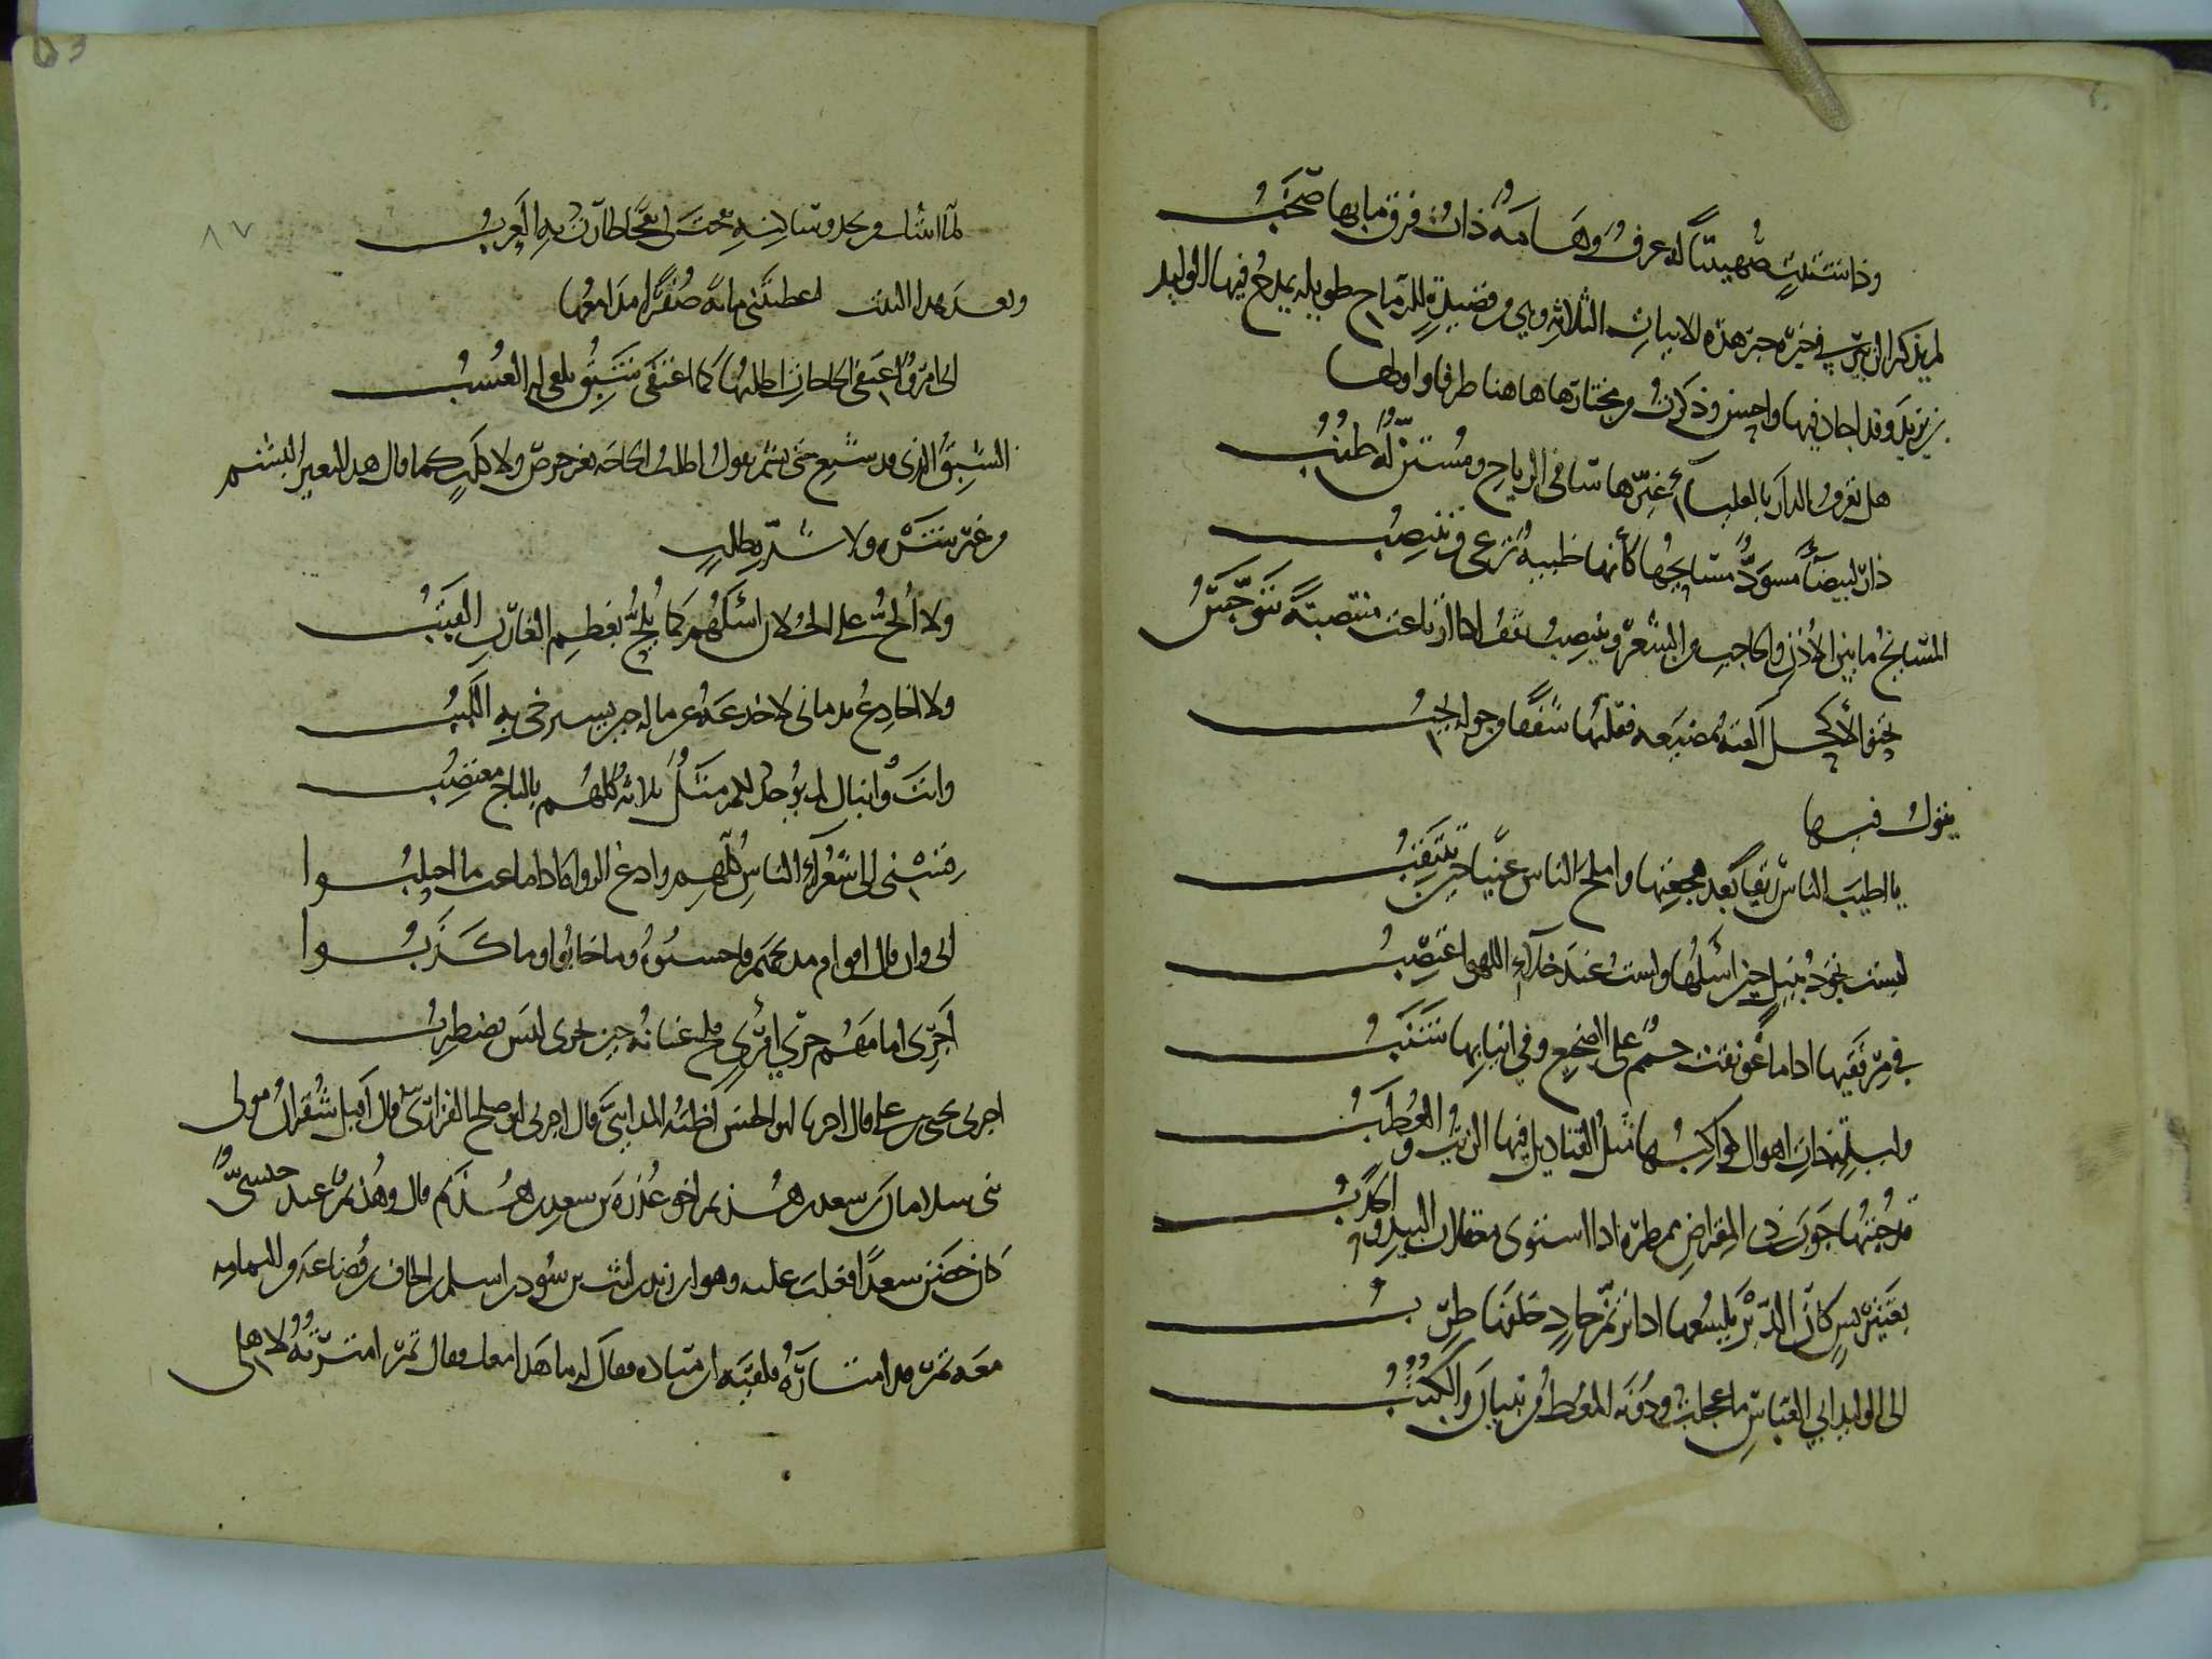 وذا شتيت صهيبيا له عرف وهامة ذات فرق ما بها صخب
لم يذكر الزبير في خبره غير هذه الابيات الثلاثة وهي من قصيدة للرماح طويلة يمدح فيها الوليد
بن يزيد وقد اجاد فيها واحسن وذكرت من مختارها هاهنا طرفا واولها
هل تعرف الدار بالعلياء غيرها سافي الرياح ومستن له طنب
دار لبيضاء مسود مسايحها كأنها ظبية ترعى وتنتصب
المسايح ما بين الاذن والحاجب من الشعر وتنتصب تقف اذا ارتاعت منتصبة تتوجس
تحنو لأكحل ألقته بمضيعة فقلبها شفقا من حوله يجب
يقول فيها
يا اطيب الناس ريقا بعد هجعتها واملح الناس عينا حين تنتقب
ليست تجود بنيل حين اسألها ولست عند خلاء اللهو اغتصب
في مرفقيها اذا ما عونقت جمم على الضجيع وفي انيابها شنب
وليلة ذات اهوال كواكبها مثل القناديل فيها الزيت والعطب
قد جبتها جوب ذي المقراض ممطرة اذا استوى مغفلات البيد والحدب
بعنتريس كأن الدبر يلسعها اذا ترنم حاد خلفها طرب
الى الوليد ابي العباس ما عجلت ودونه المعط من تبيان والكثب
لما اتيتك من نجد وساكنه نفحت لي نفحة طارت بها العرب
وبعد هذا البيت اعطيتني مائة صفرا مدامعها
اني امرؤ اعتفي الحاجات اطلبها كما اعتفى سنق يلقى له العشب
السنق الذي قد شبع حتى بشم يقول اطلب الحاجة بغير حرص ولا كلب كما قال هذا البعير البشم
من غير شره ولا شدة طلب
ولا الح على الخلان اسألهم كما يلح بعظم الغارب القتب
ولا اخادع ندماني لاخدعه عن ماله حين يسترخي به اللبب
وانت وابناك لم يوجد لكم مثل ثلاثة كلهم بالتاج معتصب
فتشني الى شعراء الناس كلهم وادع الرواة اذا ما غب ما اجتلبوا
اني وان قال اقوام مديحهم فاحسنوه وما خابوا وما كذبوا
اجري امامهم جري امرئ فلج عنانه حين يجري ليس يضطرب
اخبرني يحيى بن علي قال اخبرنا ابو الحسن اظنه المدايني قال اخبرني ابو صلح الفزاري قال اقبل شقران مولى
بني سلامان بن سعد هذيم اخو عذرة بن سعد بن هذيم قال وهذيم عبد حبشي
كان حضن سعدا فغلب عليه وهو ابن زيد بن ليث بن سود بن اسلم بن الحاف بن قضاعة من اليمامة
معه تمر قد امتاره فلقيه ابن ميادة فقال له ما هذا معك فقال تمر امترته لاهلي